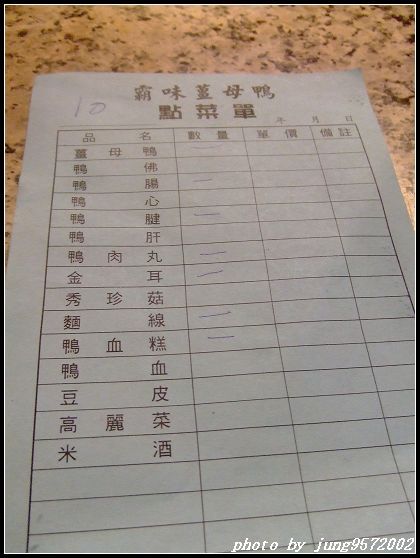 霸味薑母鴨
10
點菜單
年 月 日
品名 數量 單價 備註
薑母鴨 一
鴨佛
鴨腸 一
鴨心
鴨腱 一
鴨肝
鴨肉丸 一
金耳 一
秀珍菇
麵線 一
鴨血糕 一
鴨血
豆皮
高麗菜
米酒
photo by jung9572002